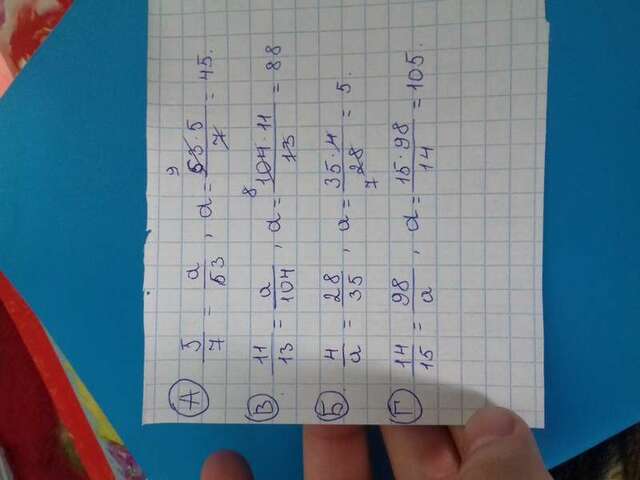 А 5/7 = a/63, a = 63·5/7 = 45. 9
В. 11/13 = a/104, a = 104·11/13 = 88 8
Б. 4/a = 28/35, a = 35·4/28 = 5. 7
Г. 14/15 = 98/a, a = 15·98/14 = 105.